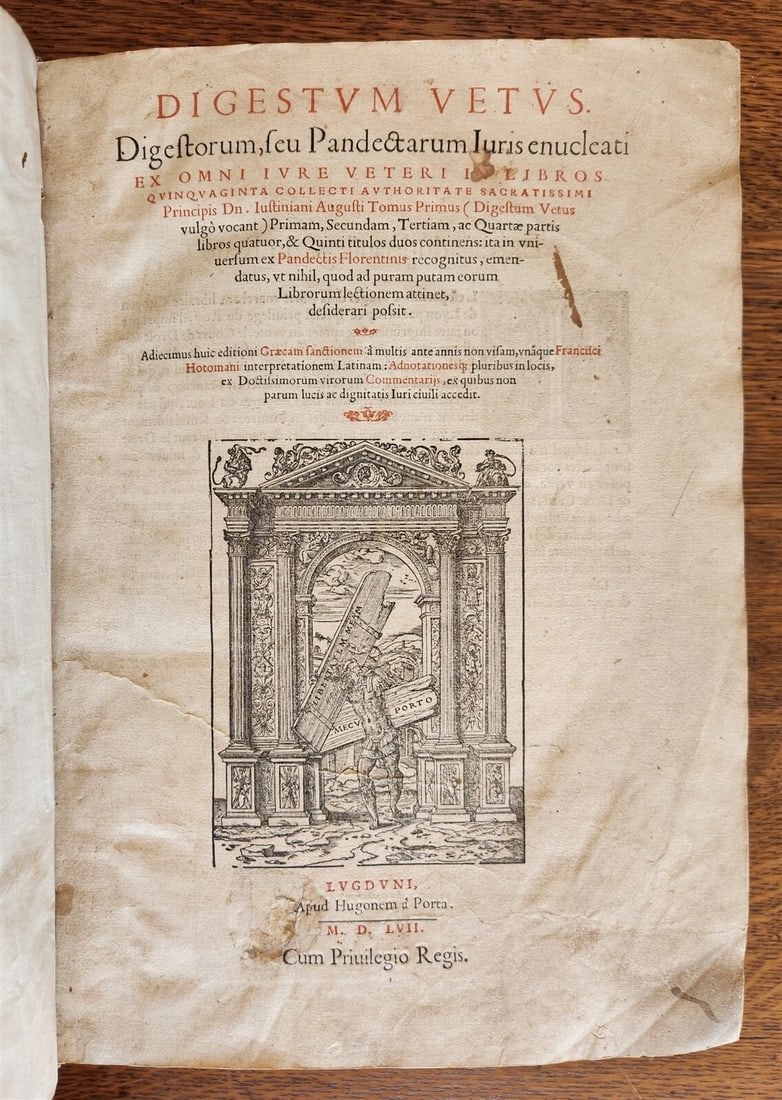 DIGESTVM VETVS.
Digestorum, seu Pandectarum Iuris enucleati
EX OMNI IVRE VETERI IN LIBROS
QVINQVAGINTA COLLECTI AVTHORITATE SACRATISSIMI
Principis Dn. Iustiniani Augusti Tomus Primus ( Digestum Vetus
vulgò vocant ) Primam, Secundam, Tertiam, ac Quartæ partis
libros quatuor, & Quinti titulos duos continens: ita in vni-
uersum ex Pandectis Florentinis recognitus, emen-
datus, vt nihil, quod ad puram putam eorum
Librorum lectionem attinet,
desiderari possit.
Adiecimus huic editioni Græcam sanctionem à multis ante annis non visam, vnáque Francisci
Hotomani interpretationem Latinam: Adnotationesq; pluribus in locis,
ex Doctissimorum virorum Commentarijs, ex quibus non
parum lucis ac dignitatis Iuri ciuili accedit.
LIBERTATEM MEAM
MECV PORTO
LVGDVNI,
Apud Hugonem à Porta.
M. D. LVII.
Cum Priuilegio Regis.